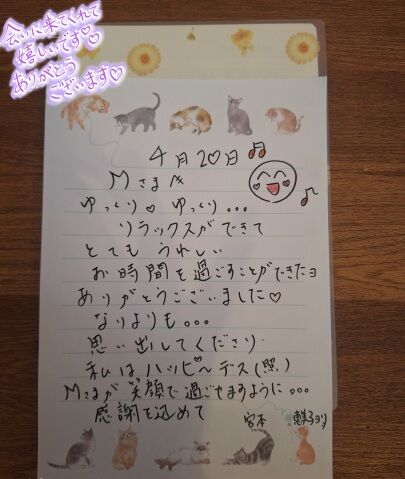 会いに来てくれて
嬉しいです♡
ありがとう
ございます♡
4月20日
Mさまへ
ゆっくり♡ ゆっくり...
リラックスができて
とてもうれしい
お時間を過ごすことができたヨ
ありがとうございました♡
なりよりも...
思い出してくださり
私はハッピ〜デス(照)
Mさまが笑顔で過ごせますように...
感謝を込めて 宮本 恵美子ヨリ